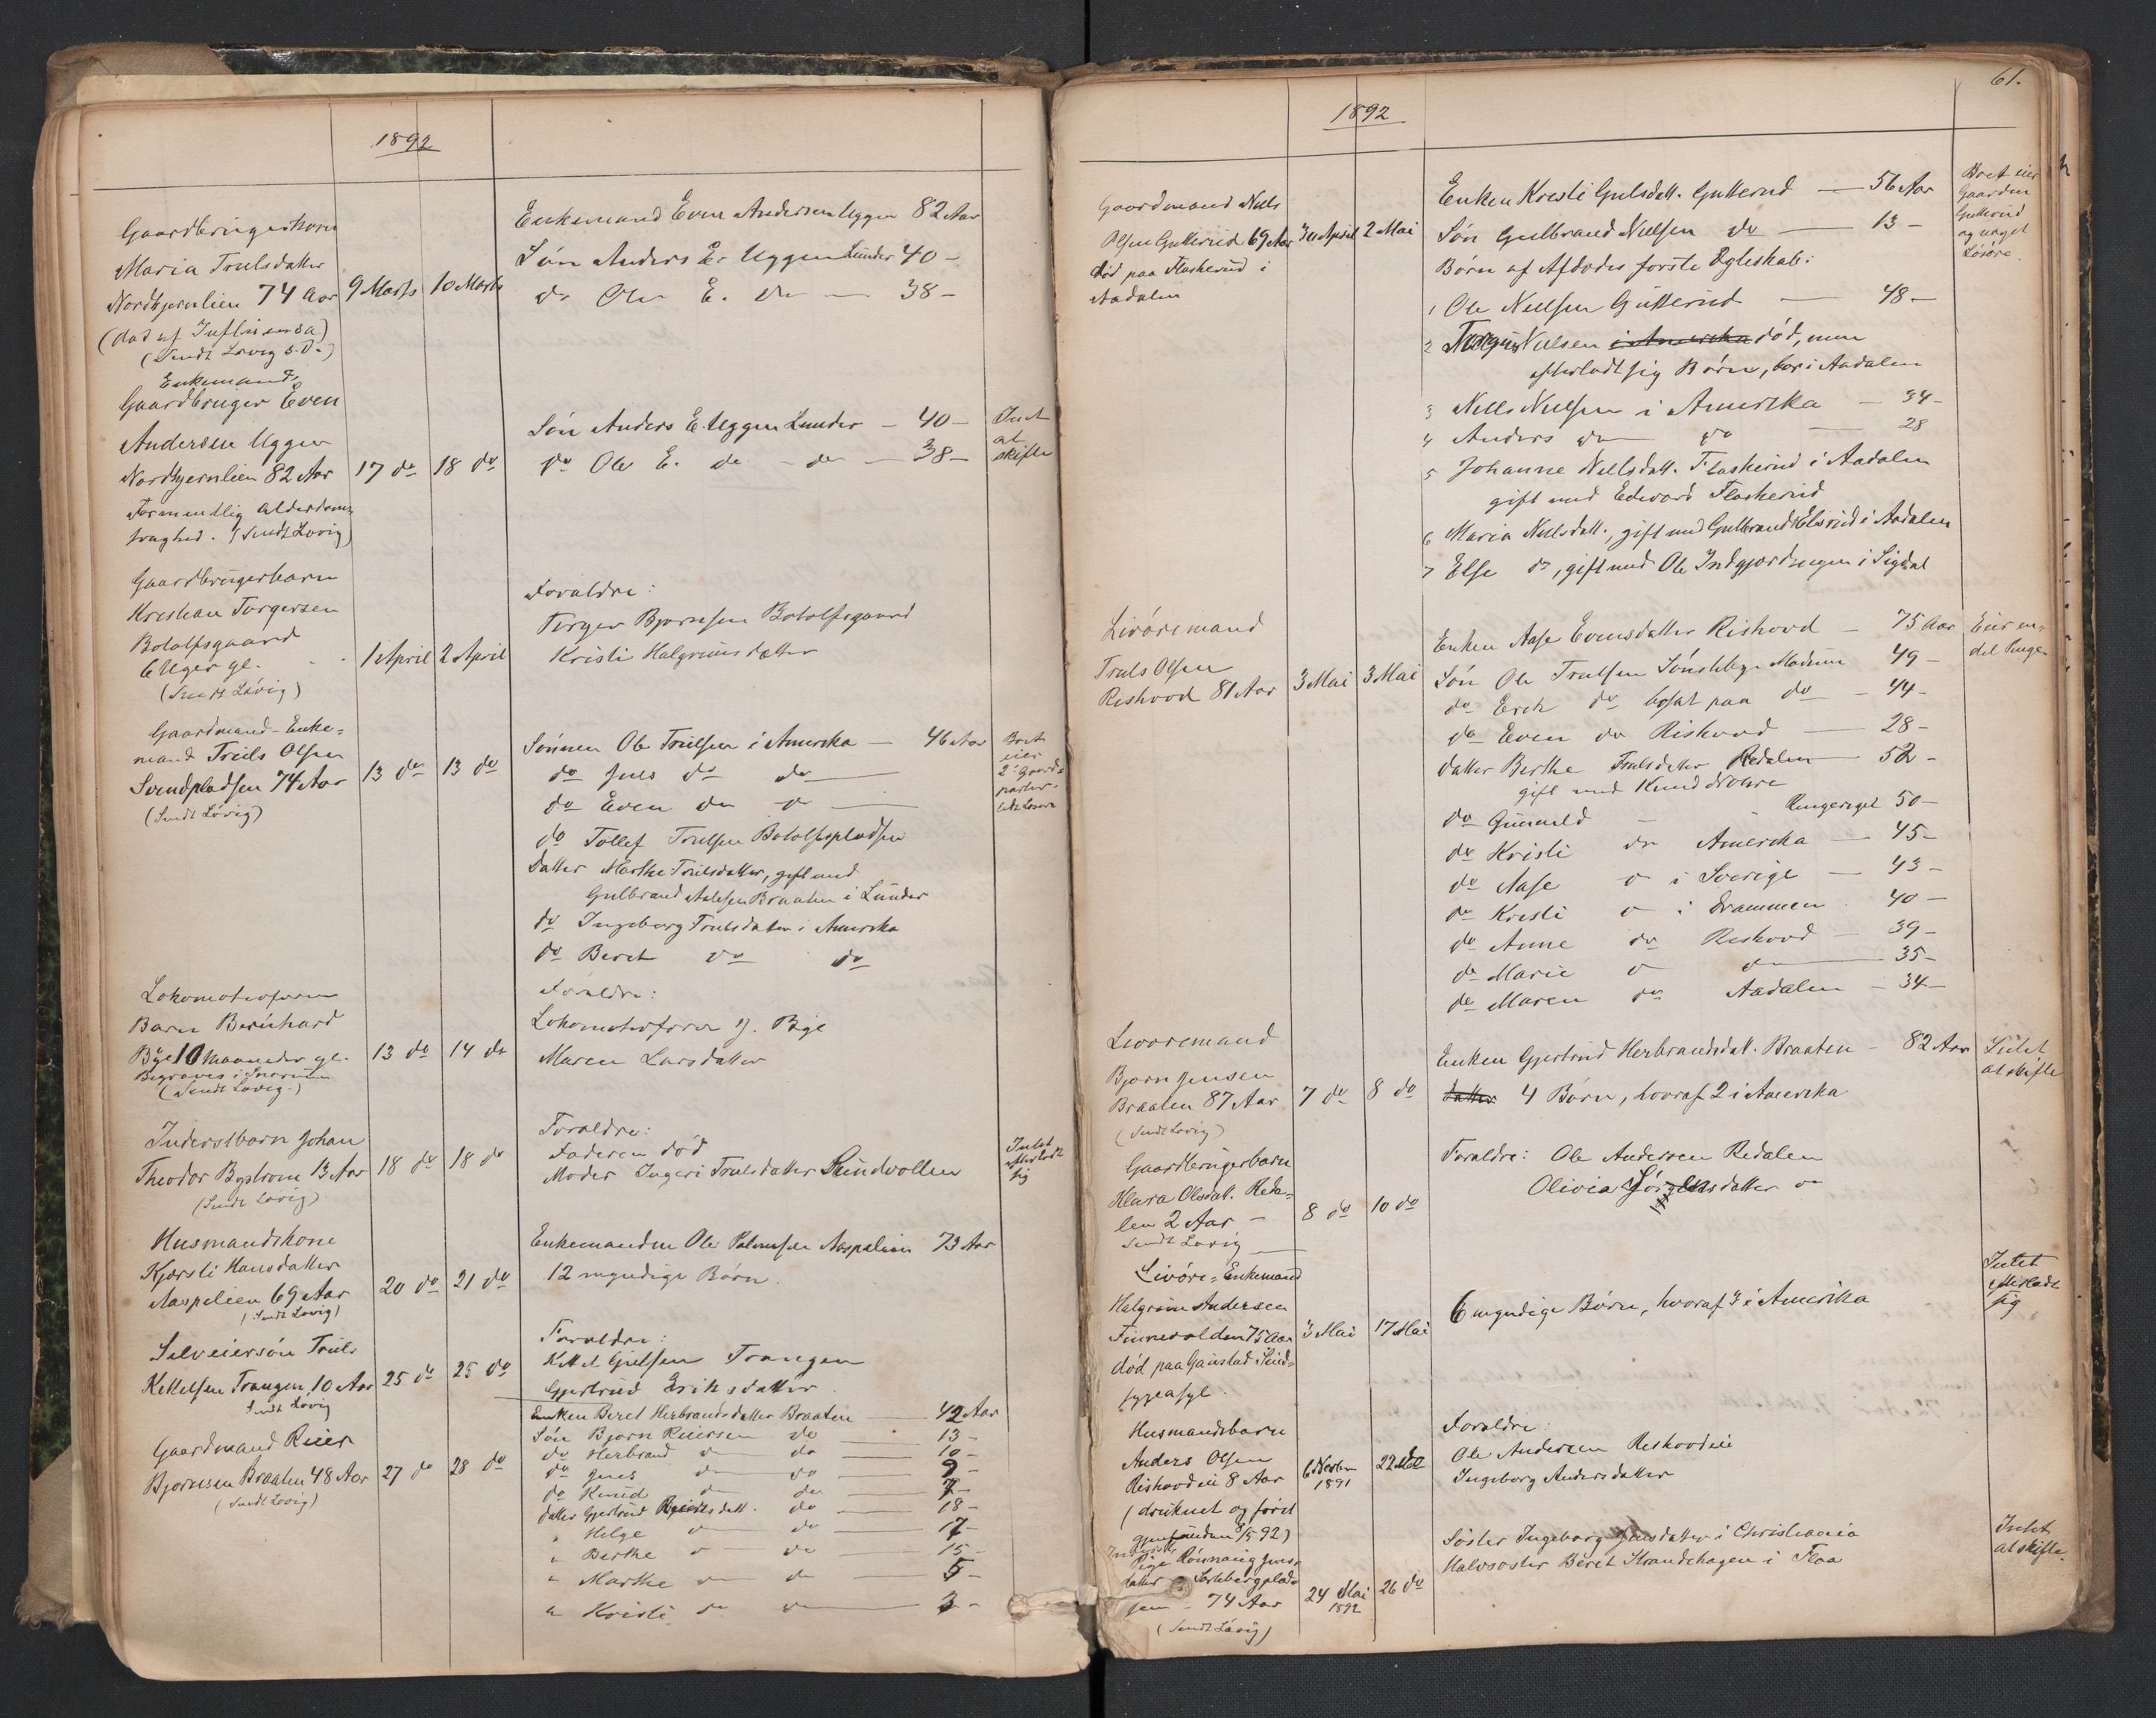 1892
Gaardbrugerkone
Maria Trulsdatter
Nordhjernlien 74 Aar 9 Marts 10 Marts
(død af Influensa)
(Sendt Løvig s.D.)
Enkemand Even Andersen Uggen 82 Aar
Søn Anders E. Uggen Lunder 40 -
do Ole E. do - 38 -
Enkemand,
Gaardbruger Even
Andersen Uggen
Nordhjernlien 82 Aar 17 do 18 do
Formentlig Alderdoms
svaghed. (Sendt Løvig)
Søn Anders E. Uggen Lunder - 40 -
do Ole E. do - do - 38 -
Intet
at
skifte
Gaardbrugerbarn
Kristian Torgersen
Botolfsgaard
6 Uger gl. 1 April 2 April
(Sendt Løvig)
Forældre:
Torger Bjørnsen Botolfsgaard
Kristi Halgrimsdatter
Gaardmand - Enke=
mand Truls Olsen
Svendpladsen 74 Aar 13 do 13 do
(Sendt Løvig)
Sønnen Ole Trulsen i Amerika - 46 Aar
do Jens do do
do Even do do
do Tollef Trulsen Botolfspladsen
Datter Marthe Trulsdatter, gift med
Gulbrand Braaten i Lunder
do Ingeborg Trulsdatter i Amerika
do Beret do do
Boet
eier
2 Gaard=
parter
Lokomotivfører
Barn Bernhard
Bye 10 Maaneder gl. 13 do 14 do
Begraves i Snarum
(Sendt Løvig.)
Forældre:
Lokomotivfører J. Bye
Maren Larsdatter
Inderstbarn Johan
Theodor Bystrøm 13 Aar 18 do 18 do
(Sendt Løvig)
Forældre:
Faderen død
Moder Ingeri Trulsdatter Sundvollen
Intet
efterladt
sig
Husmandskone
Kjersti Hansdatter
Aaspelien 69 Aar 20 do 21 do
(Sendt Løvig)
Enkemanden Ole Aaspelien 73 Aar
12 myndige Børn.
Selveiersøn Truls
Kettelsen Trangen 10 Aar 25 do 25 do
Sendt Løvig
Forældre:
Kettel Trangen
Gjertrud Eriksdatter
Gaardmand Reier
Bjørnsen Braaten 48 Aar 27 do 28 do
(Sendt Løvig)
Enken Beret Herbrandsdatter Braaten - 42 Aar
Søn Bjørn Reiersen do - 13 -
do Herbrand do do - 10 -
do Jens do do - 9 -
do Knud do do - 7 -
Datter Gjertrud Reiersdatt. do - 18 -
" Helge do do - 17 -
" Berthe do do - 15 -
" Marthe do do - 5 -
" Kristi do do - 3 -
61.
1892
Gaardmand Niels
Olsen Gutterud 69 Aar 30 April 2 Mai
død paa Flaskerud i
Aadalen
Enken Kristi Gulsdatt. Gutterud - 56 Aar
Søn Gulbrand Nielsen do - 13 -
Børn af Afdødes første Egteskab:
1 Ole Nielsen Gutterud - 48 -
2 Nielsen i Amerika død, men
efterladt sig Børn, bor i Aadalen
3 Niels Nielsen i Amerika - 34 -
4 Anders do do - 28
5 Johanne Nielsdatt. Flaskerud i Aadalen
gift med Edvard Flaskerud
6 Maria Nielsdatt., gift med Gulbrand Elsrud i Aadalen
7 Else do, gift med Ole Indgjerdingen i Sigdal
Boet eier
Gaarden
Gutterud
og noget
Løsøre.
Livøremand
Truls Olsen
Rishovd 81 Aar 3 Mai 3 Mai
Enken Aase Evensdatter Rishovd - 75 Aar
Søn Ole Trulsen Sønsteby Modum 49 -
do Erik do bosat paa do - 44 -
do Even do Rishovd - 28 -
Datter Berthe Trulsdatter Redalen - 52 -
gift med Knud
do Gunnild - Ringeriget 50 -
do Kristi do Amerika - 45 -
do Aase do i Sverige - 43 -
do Kristi do i Drammen 40 -
do Anne do Rishovd - 39 -
do Marie do do - 35 -
do Maren do Aadalen - 34 -
Eier en
del Penge
Livøremand
Bjørn Jensen
Braaten 87 Aar 7 do 8 do
(Sendt Løvig)
Enken Gjertrud Herbrandsdat. Braaten - 82 Aar
Datter 4 Børn, hvoraf 2 i Amerika
Intet
at skifte
Gaardbrugerbarn
Klara Olsdat. Reda=
len 2 Aar - 8 do 10 do
Sendt Løvig
Forældre: Ole Andersen Redalen
Olivia Jørgensdatter do
Livøre=Enkemand
Halgrim Andersen
Finnerolden 75 Aar 3 Mai 17 Mai
død paa Gaustad Sind=
sygeasyl.
6 myndige Børn, hvoraf 3 i Amerika
Intet
efterladt
sig
Husmandsbarn
Anders Olsen
Rishovdeie 8 Aar 6 Novbr 1891 22 Mai
(druknet og først
gjenfunden 92)
Forældre:
Ole Andersen Rishovdeie
Ingeborg Andersdatter
Inderst
Pige Rønnaug Jens=
datter plad=
sen - 74 Aar 24 Mai 1892 26 do
(Sendt Løvig)
Søster Ingeborg Jensdatter i Christiania
Halvsøster Beret Strandehagen i Flaa
Intet
at skifte.